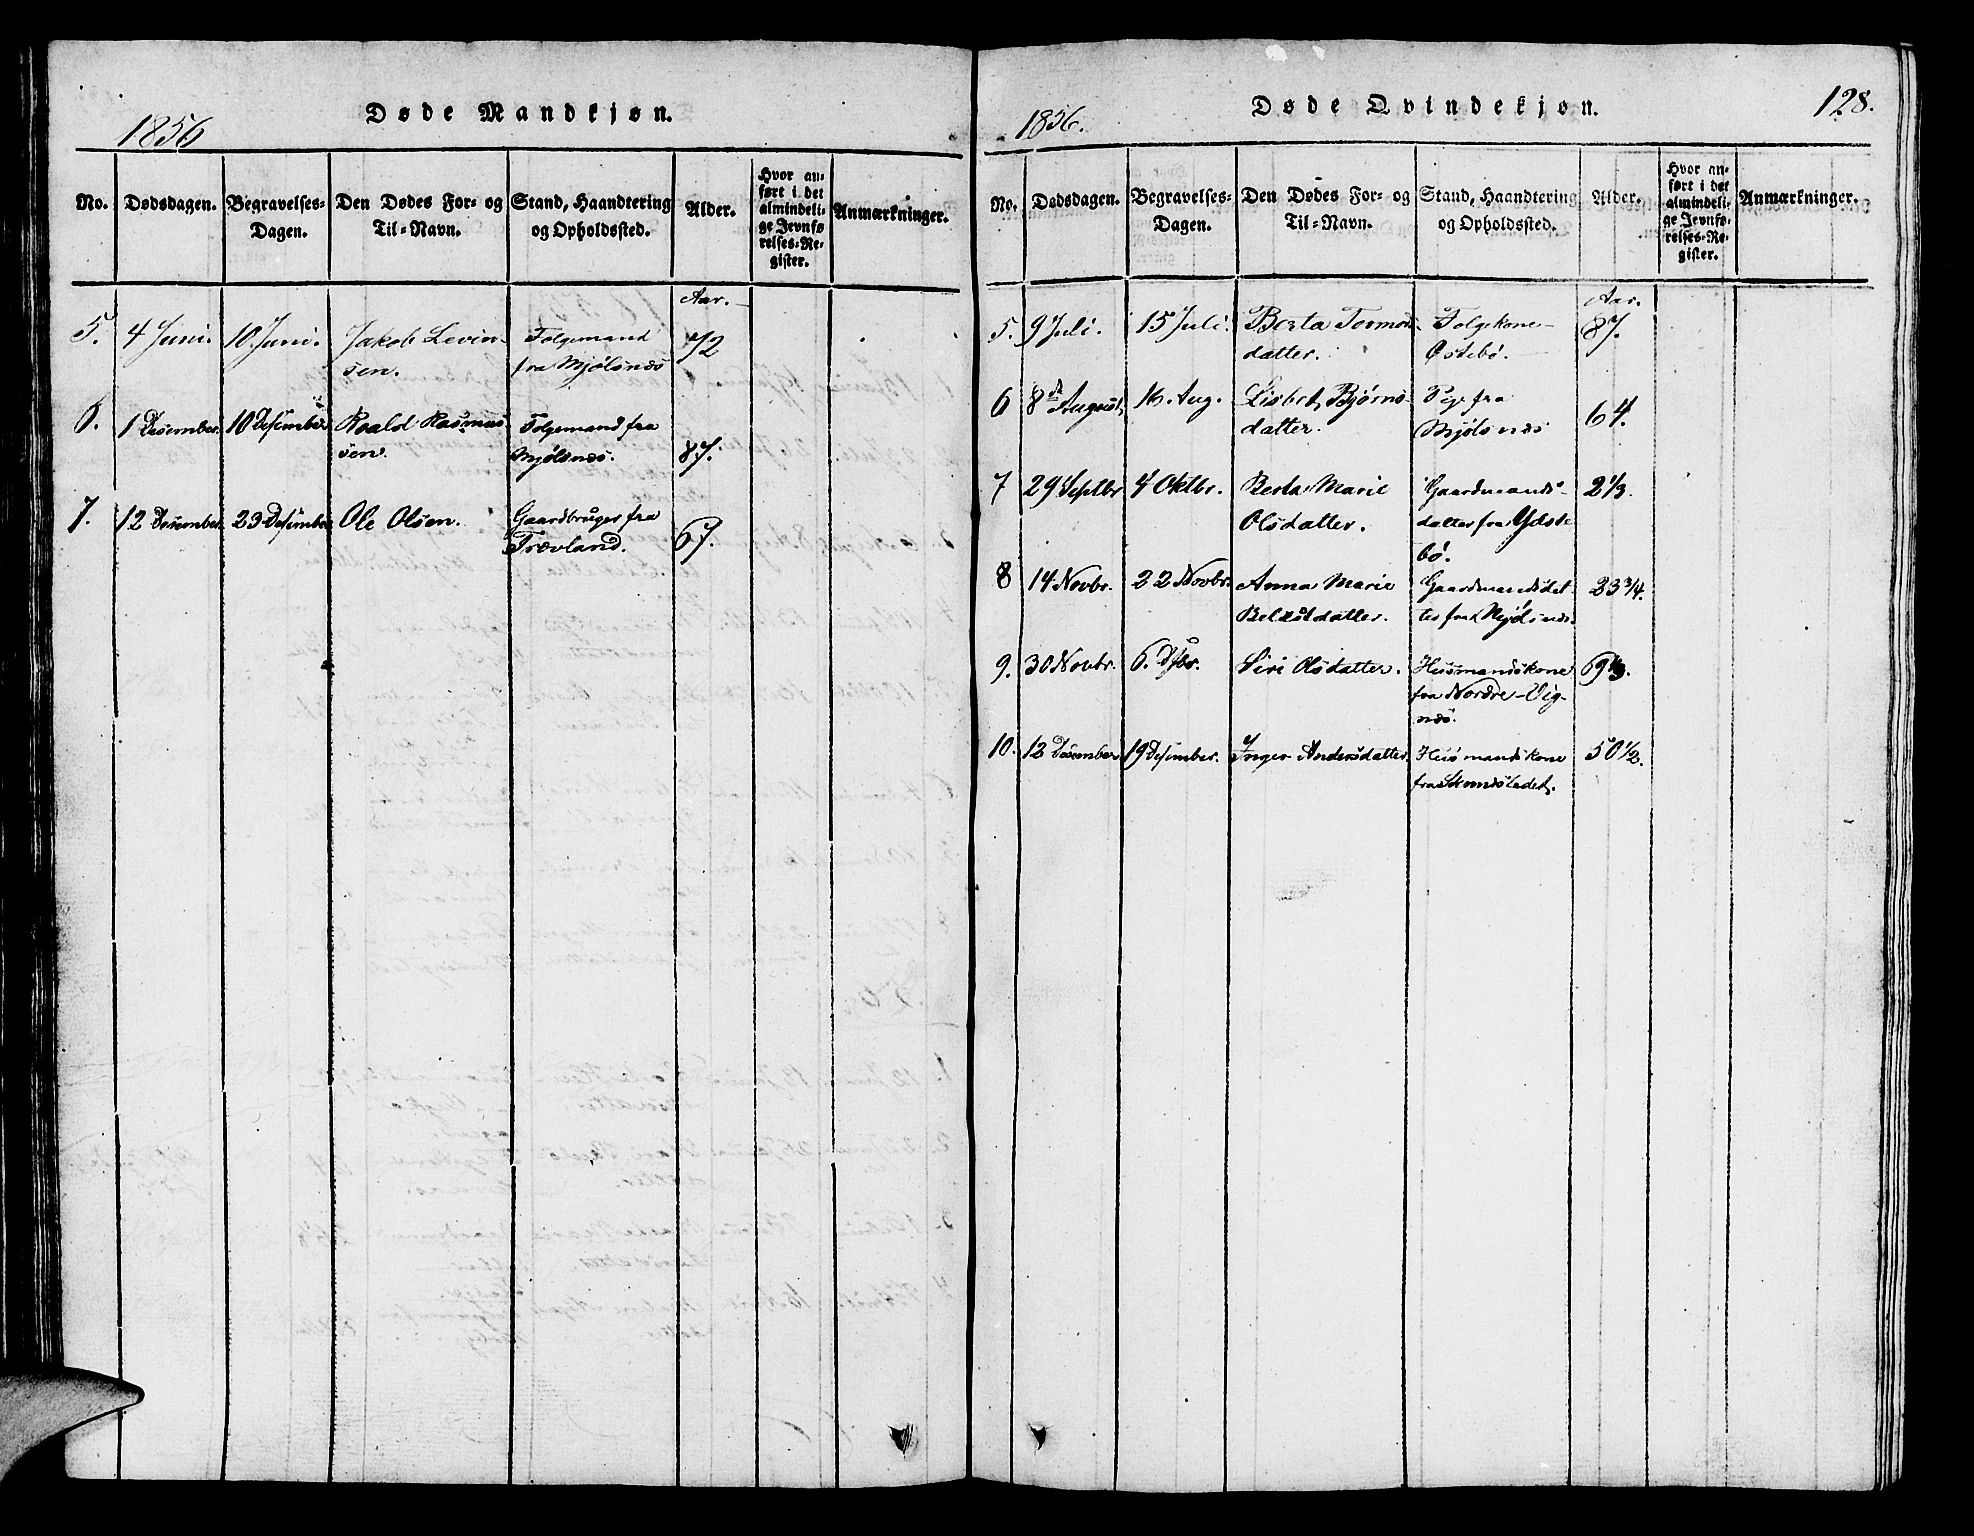 1856
Døde Mandkjøn.
No. Dødsdagen. Begravelses-Dagen. Den Dødes For- og Til-Navn. Stand, Haandtering og Opholdssted. Alder. Hvor anført i det almindelige Jevnførelses-Register. Anmærkninger.
Aar.
5. 4 Juni. 10 Juni. Jakob Levin- Folgemand 72
sen. fra Mjölsnæs
6. 1 Desember. 10 Desember Roald Rasmus Folgemand fra
sen. Mjölsnæs. 87.
7. 12 Desember. 23 Desember Ole Olsen. Gaardbruger fra
Trævland. 67.
1856.
Døde Qvindekjøn.
128.
No. Dødsdagen. Begravelses-Dagen. Den Dødes For- og Til-Navn. Stand, Haandtering og Opholdssted. Alder. Hvor anført i det almindelige Jevnførelses-Register. Anmærkninger.
Aar.
5. 9 Juli. 15 Juli. Berta Tormods- Folgekone 87.
datter. Östebö.
6 8de August 16. Aug. Lisbet Bjørns- Pige fra
datter. Mjölsnæs 64.
7 29 Septbr 4 Oktbr. Berta Marie Gaardmands- 2 1/3.
Olsdatter. datter fra Ydste-
bö.
8 14 Novbr. 22 Novbr. Anna Marie Gaardmandsdat- 23 3/4.
datter. ter fra Mjölsnæs.
9. 30 Novbr. 6. Dsbr. Siri Olsdatter. Husmandskone 69 1/3.
fra Nordre-Vig-
næs.
10. 12 Desember 19 Desember. Inger Andersdatter. Husmandskone 50 1/2.
fra